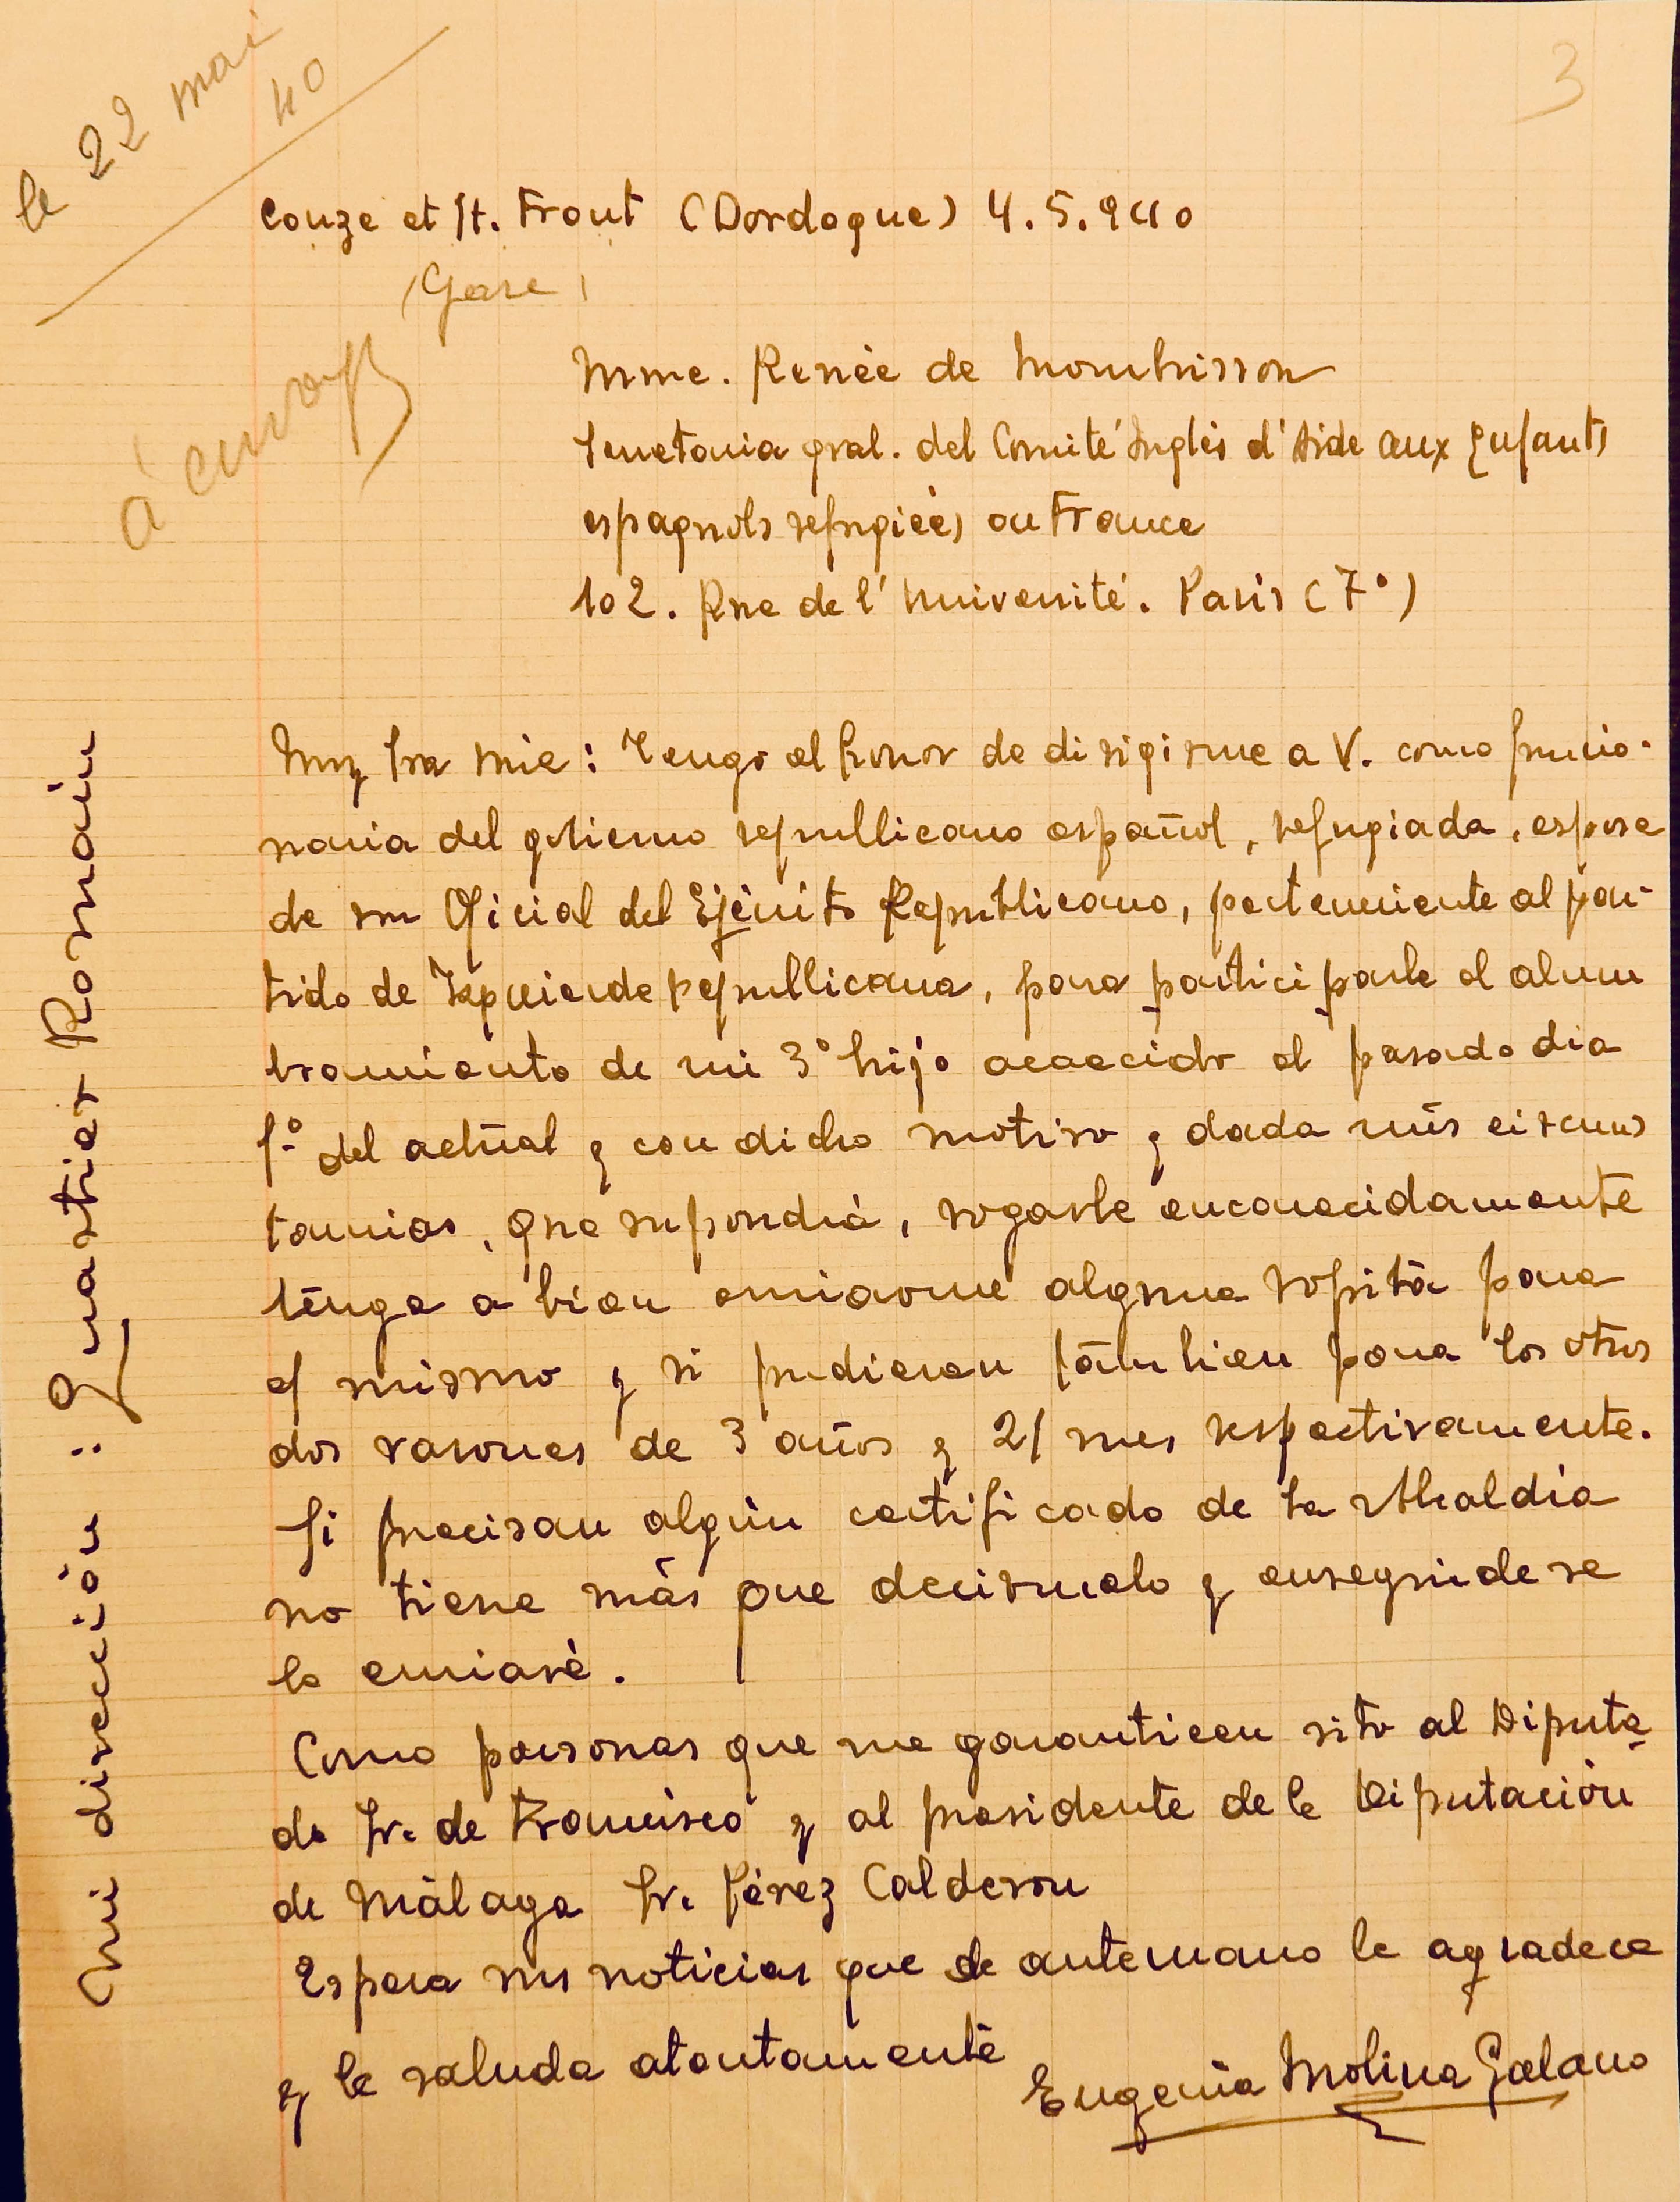 le 22 mai
40
3
Couze et St. Front (Dordogne) 4.5.940
(Gare)
à envoyé
Mme. Renée de Monbrisson
Secretaria gral. del Comité Inglés d'Aide aux Enfants
espagnols refugiées en France
102. Rue de l'Université. Paris (7º)
Muy Sra mia: Tengo el honor de dirigirme a V. como funcio-
naria del gobierno republicano español, refugiada, esposa
de un Oficial del Ejército Republicano, perteneciente al par-
tido de Izquierda republicana, para participarle el alum
bramiento de mi 3º hijo acaecido el pasado dia
1º del actual y con dicho motivo y dada mis circuns
tancias, que supondrá, rogarle encarecidamente
tenga a bien enviarme alguna ropita para
el mismo y si pudieran tambien para los otros
dos varones de 3 años y 21 mes respectivamente.
Si precisan algún certificado de la Alcaldía
no tiene más que decirmelo y enseguida se
lo enviaré.
Como personas que me garanticen cito al Diputa
do Sr. de Francisco y al presidente de la Diputación
de Málaga Sr. Pérez Calderon
Espera sus noticias que de antemano le agradece
y le saluda atentamente
Eugenia Molina Galano
Mi dirección: Quartier Romain